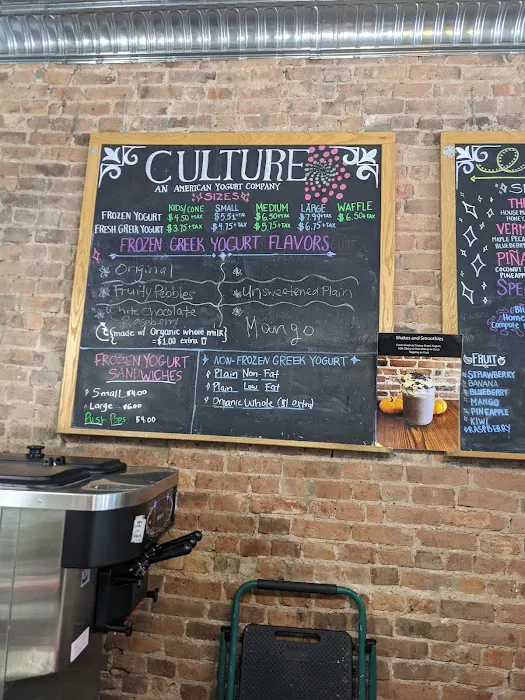 CULTURE
AN AMERICAN YOGURT COMPANY
SIZES
KIDS/CONE SMALL MEDIUM LARGE WAFFLE
FROZEN YOGURT $4.50 +TAX $5.51+TAX $6.50+TAX $7.99+TAX $6.50+TAX
FRESH GREEK YOGURT $3.75+TAX $4.75+TAX $5.75+TAX $6.75+TAX
FROZEN GREEK YOGURT FLAVORS
Original
Fruity Pebbles
Unsweetened Plain
White Chocolate
Raspberry
{made w/ Organic whole milk}
$1.00 extra
Mango
FROZEN YOGURT
SANDWICHES
Small $4.00
Large $6.00
Push Pops $4.00
NON-FROZEN GREEK YOGURT
Plain Non-Fat
Plain Low Fat
Organic Whole ($1 extra)
Shakes and Smoothies
TH
HONEY
VERM
MAPLE PECA
BLUEBERRY
PIÑA
COCONUT
PINEAPP
SPE
Blu
Home
Compote
FRUIT
STRAWBERRY
BANANA
BLUEBERRY
MANGO
PINEAPPLE
KIWI
RASPBERRY